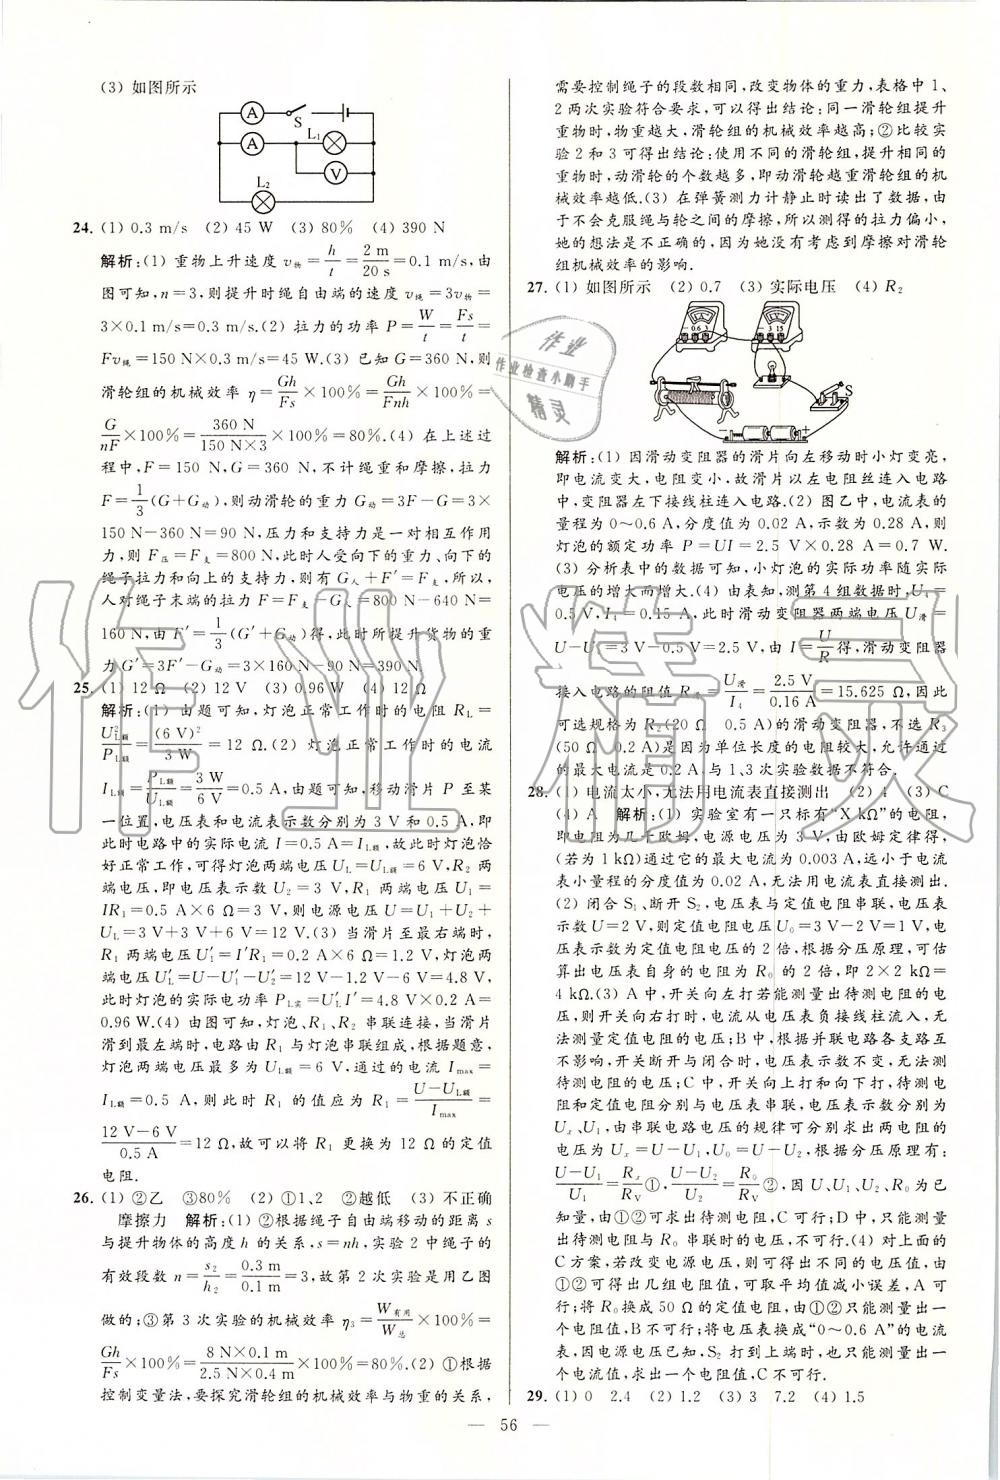 (3) 如图所示
A
S
L₁
A
V
L₂
24. (1) 0.3 m/s (2) 45 W (3) 80% (4) 390 N
解析:(1) 重物上升速度 v物=h/t=2 m/20 s=0.1 m/s,由
图可知,n=3,则提升时绳自由端的速度 v绳=3v物=
3×0.1 m/s=0.3 m/s.(2) 拉力的功率 P=W/t=Fs/t=
Fv绳=150 N×0.3 m/s=45 W.(3) 已知 G=360 N,则
滑轮组的机械效率 η=Gh/Fs×100%=Gh/Fnh×100%=
G/nF×100%=360 N/150 N×3×100%=80%.(4) 在上述过
程中,F=150 N,G=360 N,不计绳重和摩擦,拉力
F=1/3(G+G动),则动滑轮的重力 G动=3F-G=3×
150 N-360 N=90 N,压力和支持力是一对相互作用
力,则 F压=F支=800 N,此时人受向下的重力、向下的
绳子拉力和向上的支持力,则有 G人+F′=F支,所以,
人对绳子末端的拉力 F=F支-G人=800 N-640 N=
160 N,由 F′=1/3(G′+G动)得,此时所提升货物的重
力 G′=3F′-G动=3×160 N-90 N=390 N.
25. (1) 12 Ω (2) 12 V (3) 0.96 W (4) 12 Ω
解析:(1) 由题可知,灯泡正常工作时的电阻 RL=
U²L额/PL额=(6 V)²/3 W=12 Ω.(2) 灯泡正常工作时的电流
IL额=PL额/UL额=3 W/6 V=0.5 A,由题可知,移动滑片 P 至某
一位置,电压表和电流表示数分别为 3 V 和 0.5 A,即
此时电路中的实际电流 I=0.5 A=IL额,故此时灯泡恰
好正常工作,可得灯泡两端电压 UL=UL额=6 V,R₂ 两
端电压,即电压表示数 U₂=3 V,R₁ 两端电压 U₁=
IR₁=0.5 A×6 Ω=3 V,则电源电压 U=U₁+U₂+
UL=3 V+3 V+6 V=12 V.(3) 当滑片至最右端时,
R₁ 两端电压 U₁′=I′R₁=0.2 A×6 Ω=1.2 V,灯泡两端
电压 UL′=U-U₁′-U₂′=12 V-1.2 V-6 V=4.8 V,
此时灯泡的实际电功率 PL实=UL′I′=4.8 V×0.2 A=
0.96 W.(4) 由图可知,灯泡、R₁、R₂ 串联连接,当滑片
滑到最左端时,电路由 R₁ 与灯泡串联组成,根据题意,
灯泡两端电压最多为 UL额=6 V,通过的电流 Imax=
IL额=0.5 A,则此时 R₁ 的值应为 R₁=U-UL额/Imax=
12 V-6 V/0.5 A=12 Ω,故可以将 R₁ 更换为 12 Ω 的定值
电阻.
26. (1) ②乙 ③80% (2) ①1、2 ②越低 (3) 不正确
摩擦力 解析:(1) ②根据绳子自由端移动的距离 s
与提升物体的高度 h 的关系,s=nh,实验 2 中绳子的
有效段数 n=s₂/h₂=0.3 m/0.1 m=3,故第 2 次实验是用乙图
做的;③第 3 次实验的机械效率 η₃=W有用/W总×100%=
Gh/Fs×100%=8 N×0.1 m/2.5 N×0.4 m×100%=80%.(2) ①根据
控制变量法,要探究滑轮组的机械效率与物重的关系,
需要控制绳子的段数相同,改变物体的重力,表格中 1、
2 两次实验符合要求,可以得出结论:同一滑轮组提升
重物时,物重越大,滑轮组的机械效率越高;②比较实
验 2 和 3 可得出结论:使用不同的滑轮组,提升相同的
重物时,动滑轮的个数越多,即动滑轮越重滑轮组的机
械效率越低.(3) 在弹簧测力计静止时读出了数据,由
于不会克服绳与轮之间的摩擦,所以测得的拉力偏小,
她的想法是不正确的,因为她没有考虑到摩擦对滑轮
组机械效率的影响.
27. (1) 如图所示 (2) 0.7 (3) 实际电压 (4) R₂
- 0.6 3
- 3 15
S
P
- +
解析:(1) 因滑动变阻器的滑片向左移动时小灯变亮,
即电流变大,电阻变小,故滑片以左电阻丝连入电路
中,变阻器左下接线柱连入电路.(2) 图乙中,电流表的
量程为 0~0.6 A,分度值为 0.02 A,示数为 0.28 A,则
灯泡的额定功率 P=UI=2.5 V×0.28 A=0.7 W.
(3) 分析表中的数据可知,小灯泡的实际功率随实际
电压的增大而增大.(4) 由表知,测第 4 组数据时,U₁=
0.5 V,I₁=0.15 A,此时滑动变阻器两端电压 U滑=
U-U₁=3 V-0.5 V=2.5 V,由 I=U/R得,滑动变阻器
接入电路的阻值 R滑=U滑/I₄=2.5 V/0.16 A=15.625 Ω,因此
可选规格为 R₂(20 Ω 0.5 A)的滑动变阻器,不选 R₃
(50 Ω 0.2 A)是因为单位长度的电阻较大,允许通过
的最大电流是 0.2 A,与 1、3 次实验数据不符合.
28. (1) 电流太小,无法用电流表直接测出 (2) 4 (3) C
(4) A 解析:(1) 实验室有一只标有“X kΩ”的电阻,
即电阻为几千欧姆,电源电压为 3 V,由欧姆定律得,
(若为 1 kΩ)通过它的最大电流为 0.003 A,远小于电流
表小量程的分度值为 0.02 A,无法用电流表直接测出.
(2) 闭合 S₁,断开 S₂,电压表与定值电阻串联,电压表
示数 U=2 V,则定值电阻电压 U₀=3 V-2 V=1 V,电
压表示数为定值电阻电压的 2 倍,根据分压原理,可估
算出电压表自身的电阻为 R₀ 的 2 倍,即 2×2 kΩ=
4 kΩ.(3) A 中,开关向左打若能测量出待测电阻的电
压,则开关向右打时,电流从电压表负接线柱流入,无
法测量定值电阻的电压;B 中,根据并联电路各支路互
不影响,开关断开与闭合时,电压表示数不变,无法测
待测电阻的电压;C 中,开关向上打和向下打,待测电
阻和定值电阻分别与电压表串联,电压表示数分别为
Uₓ、U₁,由串联电路电压的规律可分别求出两电阻的
电压为 Uₓ=U-U₁,U₀=U-U₂,根据分压原理有:
U-U₁/U₁=Rₓ/RV①,U-U₂/U₂=R₀/RV②,因 U、U₁、U₂、R₀ 为已
知量,由①②可求出待测电阻,C 可行;D 中,只能测量
待测电阻与 R₀ 串联时的电压,不可行.(4) 对上面的
C 方案,若改变电源电压,则可得出不同的电压值,由
①②可得出几组电阻值,可取平均值减小误差,A 可
行;将 R₀换成 50 Ω 的定值电阻,由①②只能测量出一
个电阻值,B不可行;将电压表换成“0~0.6 A”的电流
表,因电源电压已知,S₂ 打到上端时,也只能测量出一
个电流值,求出一个电阻值,C 不可行.
29. (1) 0 2.4 (2) 1.2 (3) 3 7.2 (4) 1.5
— 56 —
作业
作业检查小助手
精灵
作业精灵